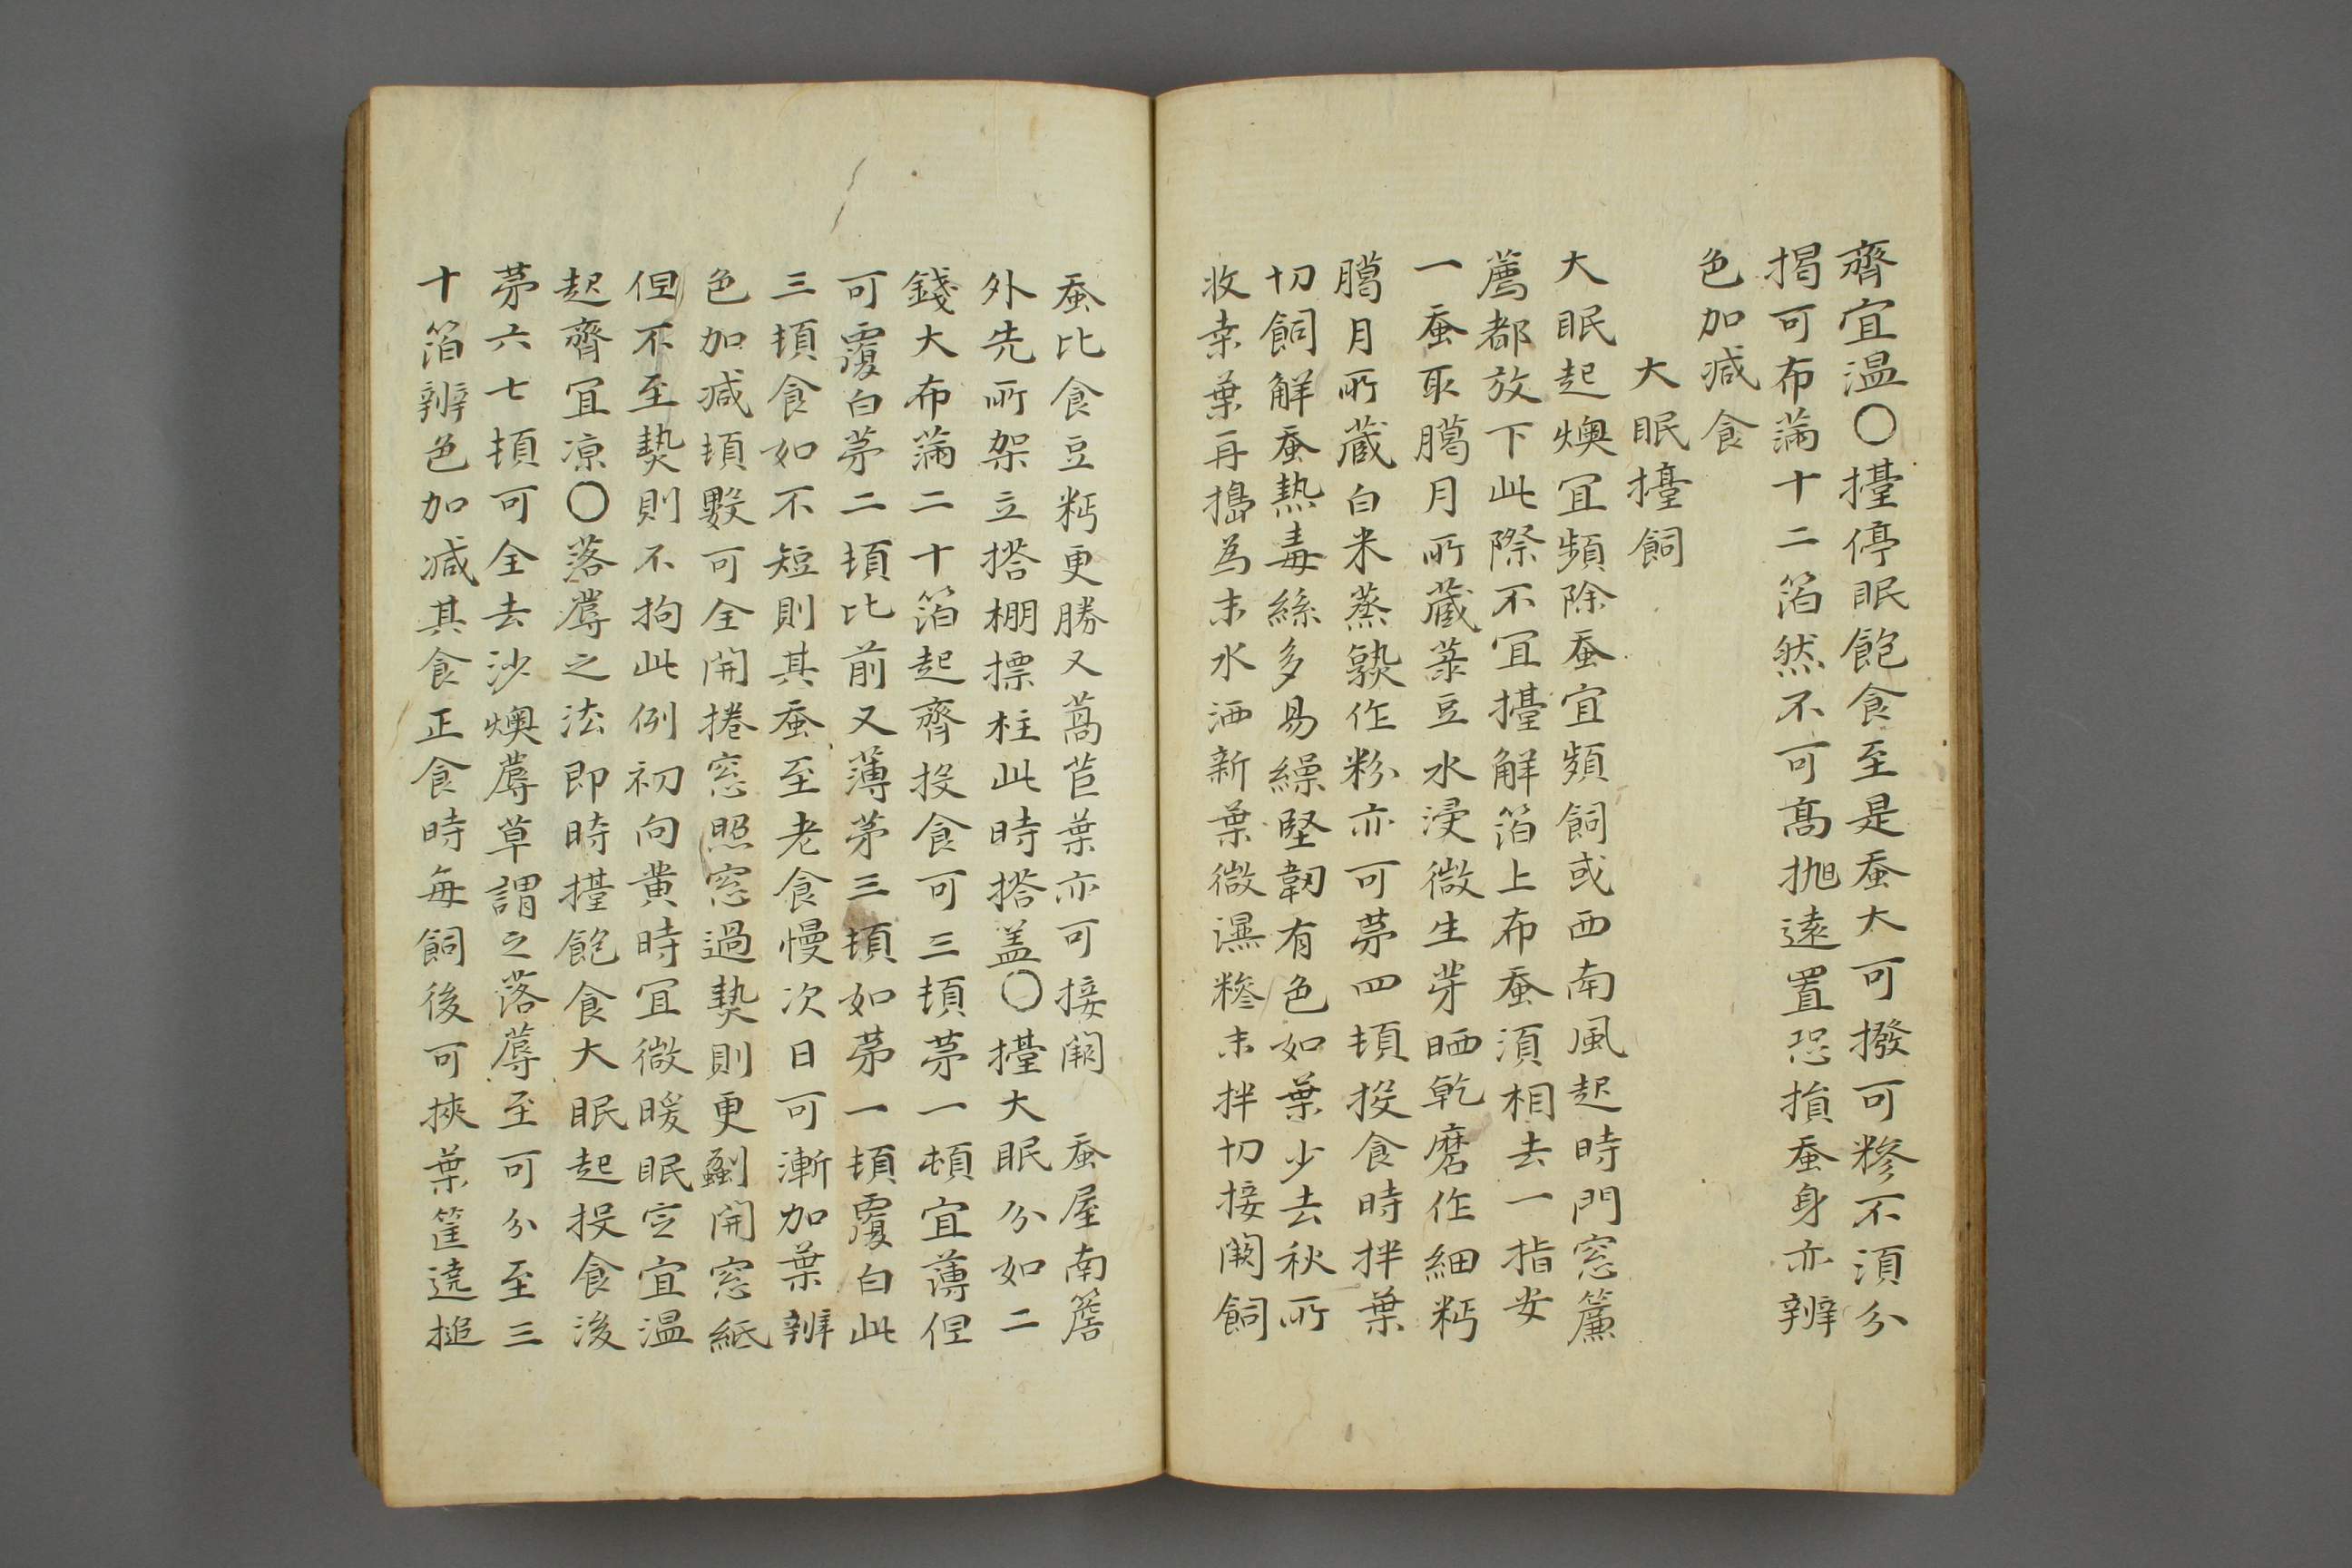 齊宜温〇擡停眠飽食至是蚕大可撥可糝不湏分
揭可布滿十二箔然不可高抛遠置恐損蚕身亦辨
色加减食
大眠擡飼
大眠起燠冝頻除蚕宜頻飼或西南風起時門窓簾
薦都放下此際不冝擡解箔上布蚕湏相去一指安
一蚕取臈月所蔵菉豆水浸微生芽晒乾磨作細麪
臈月所蔵白米蒸孰作粉亦可苐四頓投食時拌葉
切飼解蚕熱毒絲多易繰堅韌有色如葉少去秋所
收桒葉再搗為末水洒新葉微濕糝末拌切接闕飼
蚕比食豆麪更勝又萵苣葉亦可接闕　蚕屋南簷
外先所架立搭棚摽柱此時搭盖〇擡大眠分如二
錢大布滿二十箔起齊投食可三頓苐一頓宜薄但
可覆白苐二頓比前又薄苐三頓如苐一頓覆白此
三頓食如不短則其蚕至老食慢次日可漸加葉辨
色加减頓數可全開捲窓照窓過熱則更剺開窓紙
但不至熱則不拘此例初向黄時冝微暖眠定宜温
起齊冝凉〇落蓐之法即時擡飽食大眠起投食後
苐六七頓可全去沙燠蓐草謂之落蓐至可分至三
十箔辨色加减其食正食時每飼後可挾葉筐遶搥